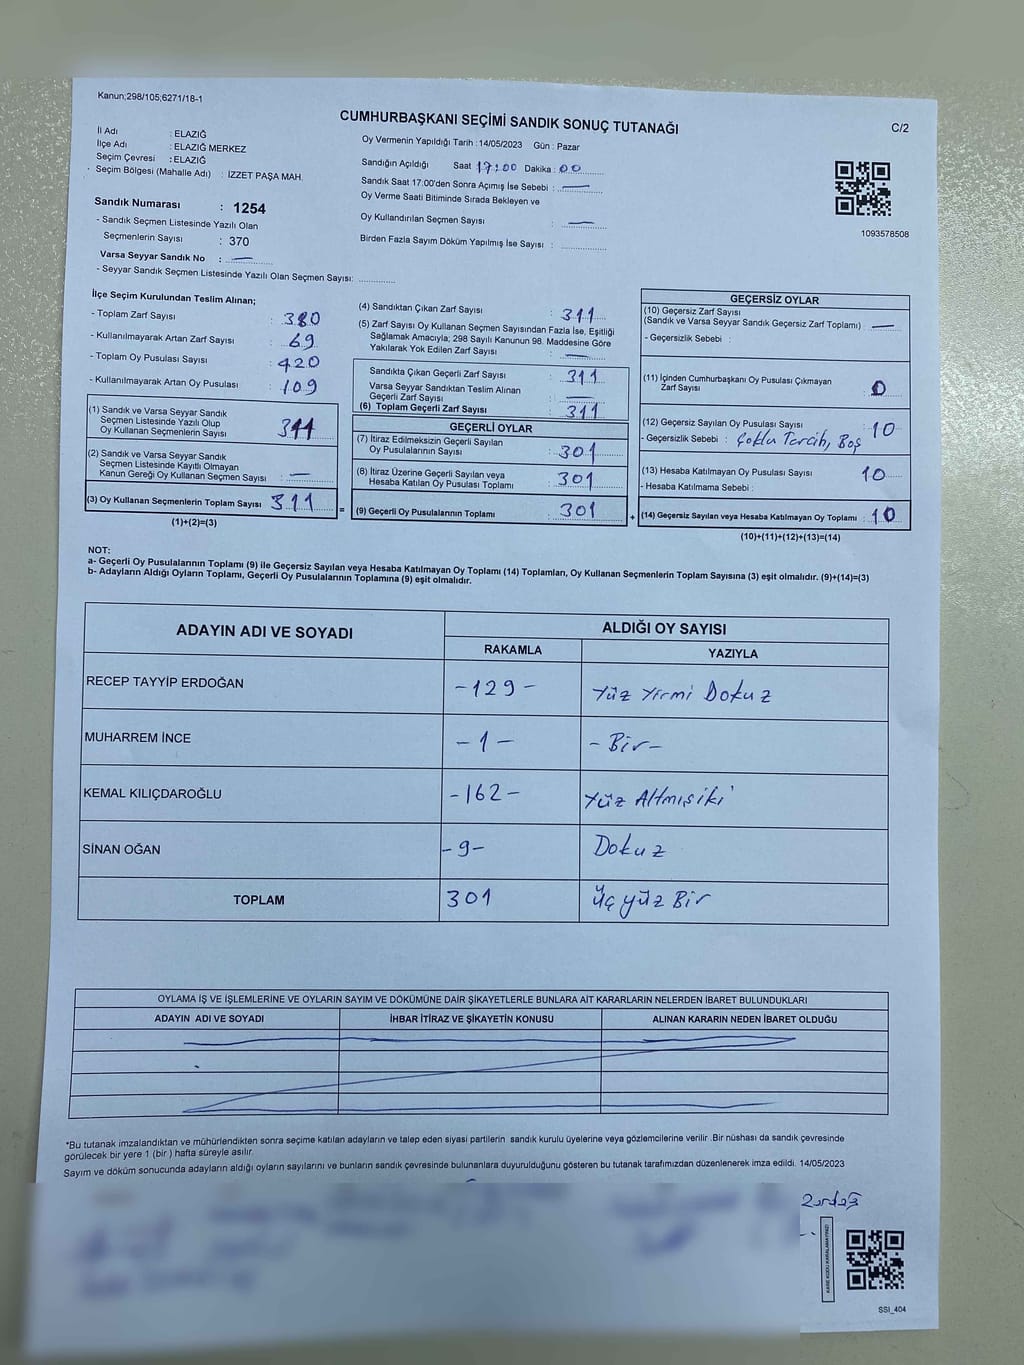 Kanun;298/105;6271/18-1
CUMHURBAŞKANI SEÇİMİ SANDIK SONUÇ TUTANAĞI
C/2
İl Adı : ELAZIĞ
İlçe Adı : ELAZIĞ MERKEZ
Seçim Çevresi : ELAZIĞ
Seçim Bölgesi (Mahalle Adı) : İZZET PAŞA MAH.
Sandık Numarası : 1254
- Sandık Seçmen Listesinde Yazılı Olan
Seçmenlerin Sayısı : 370
Varsa Seyyar Sandık No : —
- Seyyar Sandık Seçmen Listesinde Yazılı Olan Seçmen Sayısı:
Oy Vermenin Yapıldığı Tarih : 14/05/2023 Gün : Pazar
Sandığın Açıldığı Saat 17:00 Dakika : 00
Sandık Saat 17.00'den Sonra Açımış İse Sebebi : —
Oy Verme Saati Bitiminde Sırada Bekleyen ve
Oy Kullandırılan Seçmen Sayısı : —
Birden Fazla Sayım Döküm Yapılmış İse Sayısı :
1093578508
İlçe Seçim Kurulundan Teslim Alınan;
- Toplam Zarf Sayısı : 380
- Kullanılmayarak Artan Zarf Sayısı : 69
- Toplam Oy Pusulası Sayısı : 420
- Kullanılmayarak Artan Oy Pusulası : 109
(1) Sandık ve Varsa Seyyar Sandık
Seçmen Listesinde Yazılı Olup
Oy Kullanan Seçmenlerin Sayısı 311
(2) Sandık ve Varsa Seyyar Sandık
Seçmen Listesinde Kayıtlı Olmayan
Kanun Gereği Oy Kullanan Seçmen Sayısı : —
(3) Oy Kullanan Seçmenlerin Toplam Sayısı : 311
(1)+(2)=(3)
=
(4) Sandıktan Çıkan Zarf Sayısı : 311
(5) Zarf Sayısı Oy Kullanan Seçmen Sayısından Fazla İse, Eşitliği
Sağlamak Amacıyla; 298 Sayılı Kanunun 98. Maddesine Göre
Yakılarak Yok Edilen Zarf Sayısı : —
Sandıkta Çıkan Geçerli Zarf Sayısı : 311
Varsa Seyyar Sandıktan Teslim Alınan
Geçerli Zarf Sayısı : —
(6) Toplam Geçerli Zarf Sayısı : 311
GEÇERLİ OYLAR
(7) İtiraz Edilmeksizin Geçerli Sayılan
Oy Pusulalarının Sayısı : 301
(8) İtiraz Üzerine Geçerli Sayılan veya
Hesaba Katılan Oy Pusulası Toplamı : 301
(9) Geçerli Oy Pusulalarının Toplamı : 301
+
GEÇERSİZ OYLAR
(10) Geçersiz Zarf Sayısı
(Sandık ve Varsa Seyyar Sandık Geçersiz Zarf Toplamı) : —
- Geçersizlik Sebebi :
(11) İçinden Cumhurbaşkanı Oy Pusulası Çıkmayan
Zarf Sayısı : 0
(12) Geçersiz Sayılan Oy Pusulası Sayısı : 10
- Geçersizlik Sebebi : Çoklu Tercih, Boş
(13) Hesaba Katılmayan Oy Pusulası Sayısı 10
- Hesaba Katılmama Sebebi :
(14) Geçersiz Sayılan veya Hesaba Katılmayan Oy Toplamı : 10
(10)+(11)+(12)+(13)=(14)
NOT:
a- Geçerli Oy Pusulalarının Toplamı (9) ile Geçersiz Sayılan veya Hesaba Katılmayan Oy Toplamı (14) Toplamları, Oy Kullanan Seçmenlerin Toplam Sayısına (3) eşit olmalıdır. (9)+(14)=(3)
b- Adayların Aldığı Oyların Toplamı, Geçerli Oy Pusulalarının Toplamına (9) eşit olmalıdır.
ADAYIN ADI VE SOYADI ALDIĞI OY SAYISI
RAKAMLA YAZIYLA
RECEP TAYYİP ERDOĞAN -129- Yüz Yirmi Dokuz
MUHARREM İNCE -1- -Bir-
KEMAL KILIÇDAROĞLU -162- Yüz Altmışiki
SİNAN OĞAN -9- Dokuz
TOPLAM 301 Üç yüz Bir
OYLAMA İŞ VE İŞLEMLERİNE VE OYLARIN SAYIM VE DÖKÜMÜNE DAİR ŞİKAYETLERLE BUNLARA AİT KARARLARIN NELERDEN İBARET BULUNDUKLARI
ADAYIN ADI VE SOYADI İHBAR İTİRAZ VE ŞİKAYETİN KONUSU ALINAN KARARIN NEDEN İBARET OLDUĞU
*Bu tutanak imzalandıktan ve mühürlendikten sonra seçime katılan adayların ve talep eden siyasi partilerin sandık kurulu üyelerine veya gözlemcilerine verilir .Bir nüshası da sandık çevresinde
görülecek bir yere 1 (bir ) hafta süreyle asılır.
Sayım ve döküm sonucunda adayların aldığı oyların sayılarını ve bunların sandık çevresinde bulunanlara duyurulduğunu gösteren bu tutanak tarafımızdan düzenlenerek imza edildi. 14/05/2023
KARE KODU KARALAMAYINIZ!
SSI_404